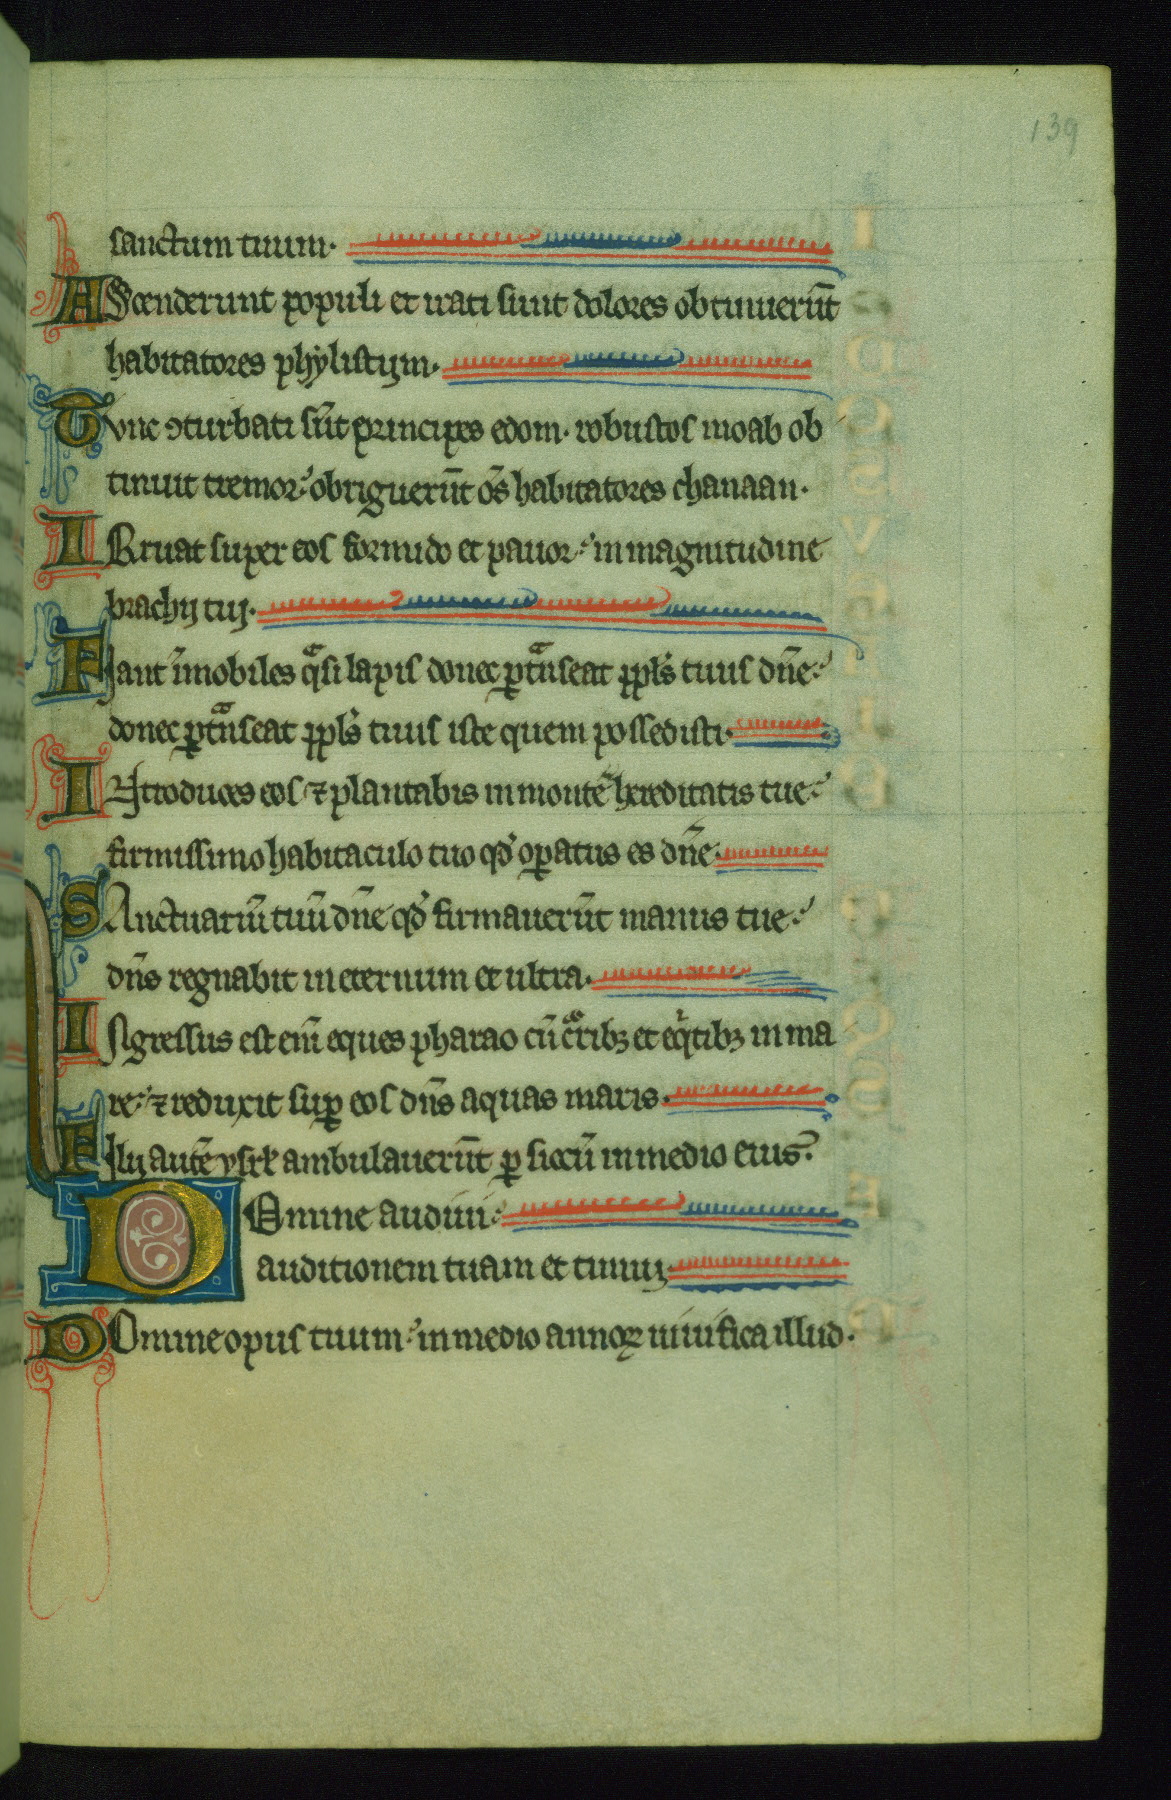 139
sanctum tuum.
AScenderunt populi et irati sunt dolores obtinuerūt
habitatores phylistijm.
Tvnc ↄturbati sūt principes edom. robustos moab ob
tinuit tremor: obriguerūt om̄s habitatores chanaan.
IRruat super eos formido et pauor: in magnitudine
brachij tuj.
Fiant īmobiles qͣsi lapis donec ꝑtͣnseat ppl̄s tuus dn̄e:
donec ꝑtͣnseat ppl̄s tuus iste quem possedisti.
INtroduces eos ⁊ plantabis in monte hereditatis tue:
firmissimo habitaculo tuo qd̓ oꝑatus es dn̄e.
SAnctuariū tuū dn̄e qd̓ firmauerūt manus tue:
dn̄s regnabit in eternum et ultra.
INgressus est eni̅ eques pharao cū cͦribꝫ et eqͥtibꝫ in ma
re: ⁊ reduxit suꝑ eos dn̄s aquas maris.
Filij autē ysrl̄ ambulauerūt ꝑ siccū in medio eius.
DOmine audiui
auditionem tuam et timuj.
DOmine opus tuum: in medio annoꝝ uiuifica illud.